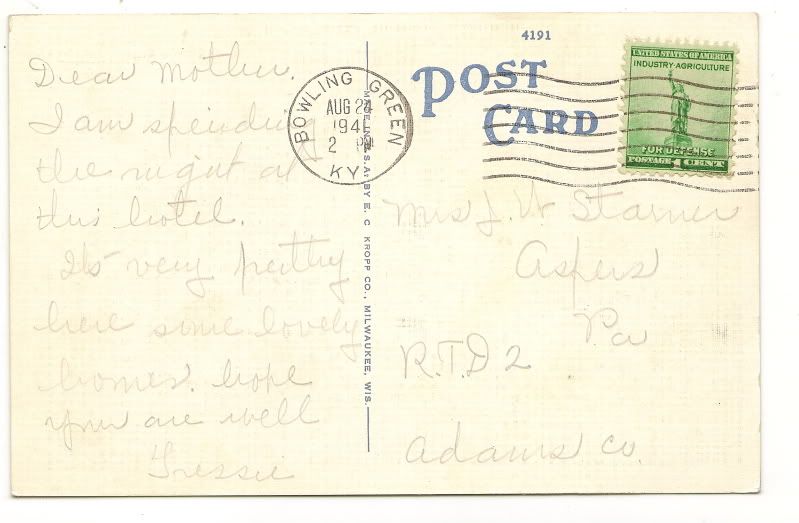 Dear Mother.
I am spending
the night at
this hotel.
Its very pretty
here some lovely
homes. hope
your are well
Tressie
4191
POST
CARD
BOWLING GREEN
AUG 24
1941
2 PM
KY.
UNITED STATES OF AMERICA
INDUSTRY·AGRICULTURE
FOR DEFENSE
POSTAGE 1 CENT
MADE IN U.S.A. BY E. C. KROPP CO., MILWAUKEE, WIS.
Mrs J. W Starner
Aspers
Pa
R.F.D 2
Adams Co.